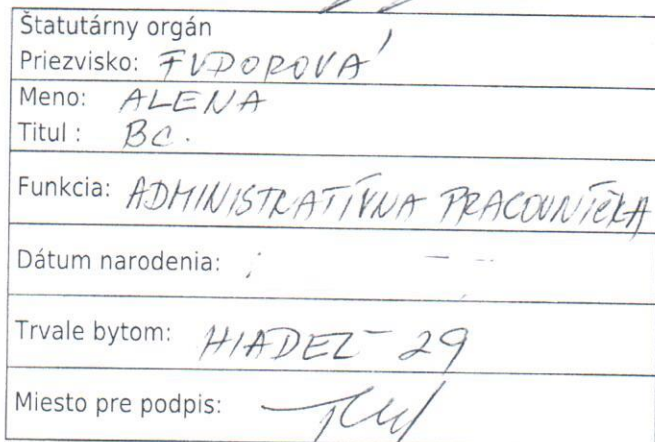 Štatutárny orgán
Priezvisko: FUDOROVÁ
Meno: ALENA
Titul : BC.
Funkcia: ADMINISTRATÍVNA PRACOVNÍČKA
Dátum narodenia:
Trvale bytom: HIADEĽ 29
Miesto pre podpis: